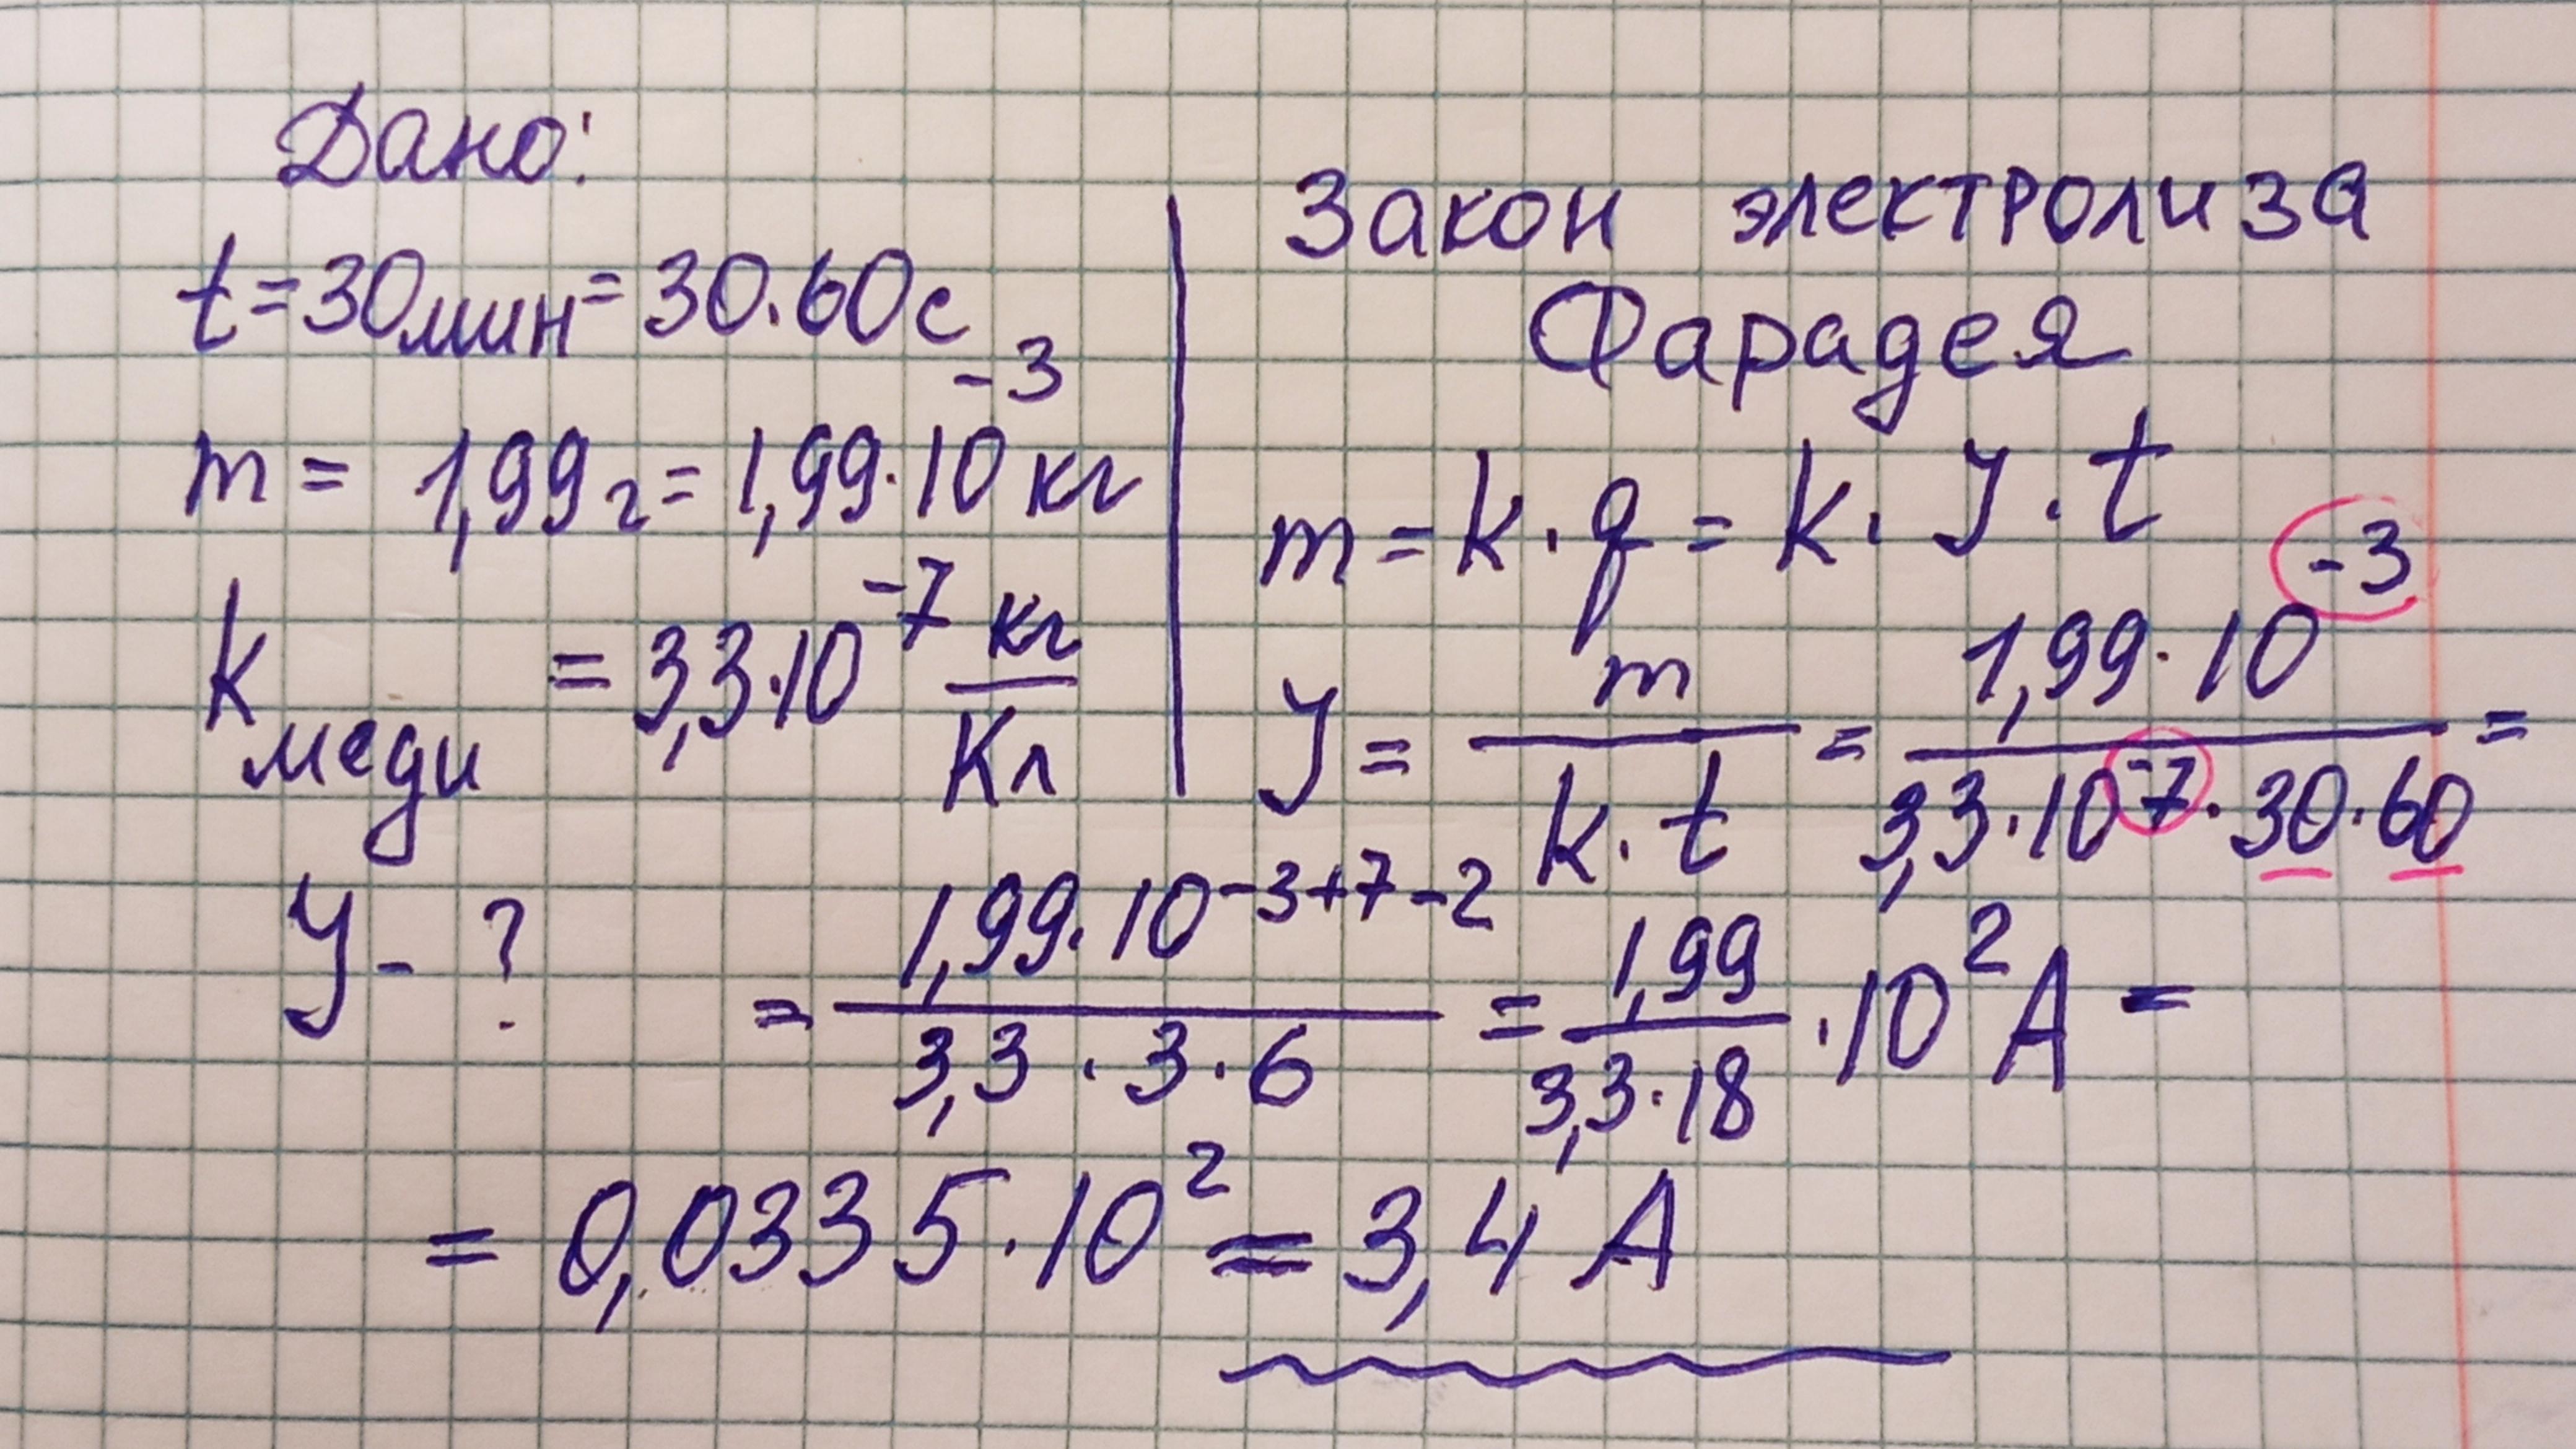 Дано:
t=30мин=30.60с
m = 1,99г= 1,99·10⁻³ кг
k меди = 3,3·10⁻⁷ кг/Кл
У - ?
Закон электролиза
Фарадея
m = k · q = k · У · t
У = m / k · t = 1,99 · 10⁻³ / 3,3 · 10⁻⁷ · 30 · 60 =
= 1,99 · 10⁻³⁺⁷⁻² / 3,3 · 3 · 6 = 1,99 / 3,3 · 18 · 10² А =
= 0,0335 · 10² = 3,4 А